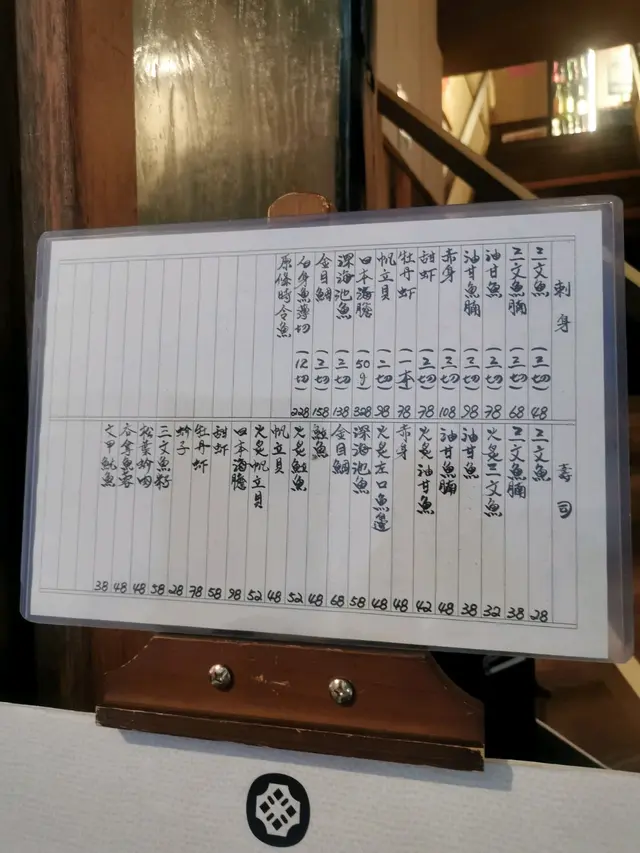 刺身
三文魚 (三切) 48
三文魚腩 (三切) 68
油甘魚 (三切) 78
油甘魚腩 (三切) 98
赤身 (三切) 108
甜虾 (三切) 78
牡丹虾 (一本) 78
帆立貝 (二切) 98
日本海膽 (50g) 328
深海池魚 (三切) 138
金目鯛 (三切) 158
白身魚薄切 (12切) 228
原條時令魚
壽司
三文魚 28
三文魚腩 38
火炙三文魚 32
油甘魚 38
油甘魚腩 48
火炙油甘魚 42
赤身 48
火炙左口魚邊 48
深海池魚 58
金目鯛 68
鮫魚 48
火炙鮫魚 52
帆立貝 48
火炙帆立貝 52
日本海膽 98
甜虾 58
牡丹虾 78
蚧子 28
三文魚籽 58
松葉蚧肉 48
吞拿魚蓉 48
大甲魷魚 38